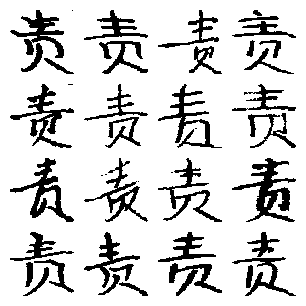 责责责责
责责责责
责责责责
责责责责